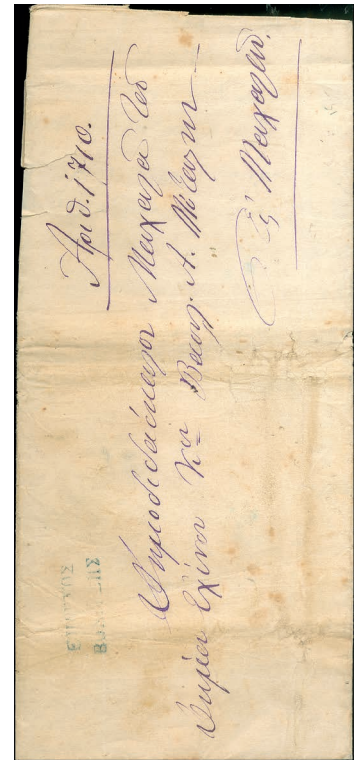 Αριθ. 1710.
Δημοδιδάσκαλον Μαχαλᾶ τοῦ
Δήμου Εχίνου Κον Βασιλ. Α.
Εἰς Μαχαλᾶν.